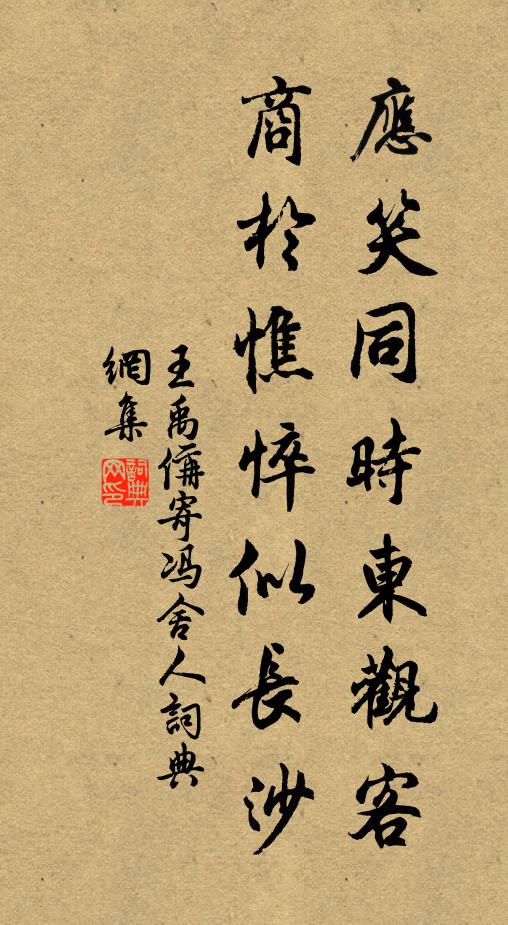 應笑同時東觀客
商於憔悴似長沙
王禹偁寄冯舍人詞典
網集
詞典網印